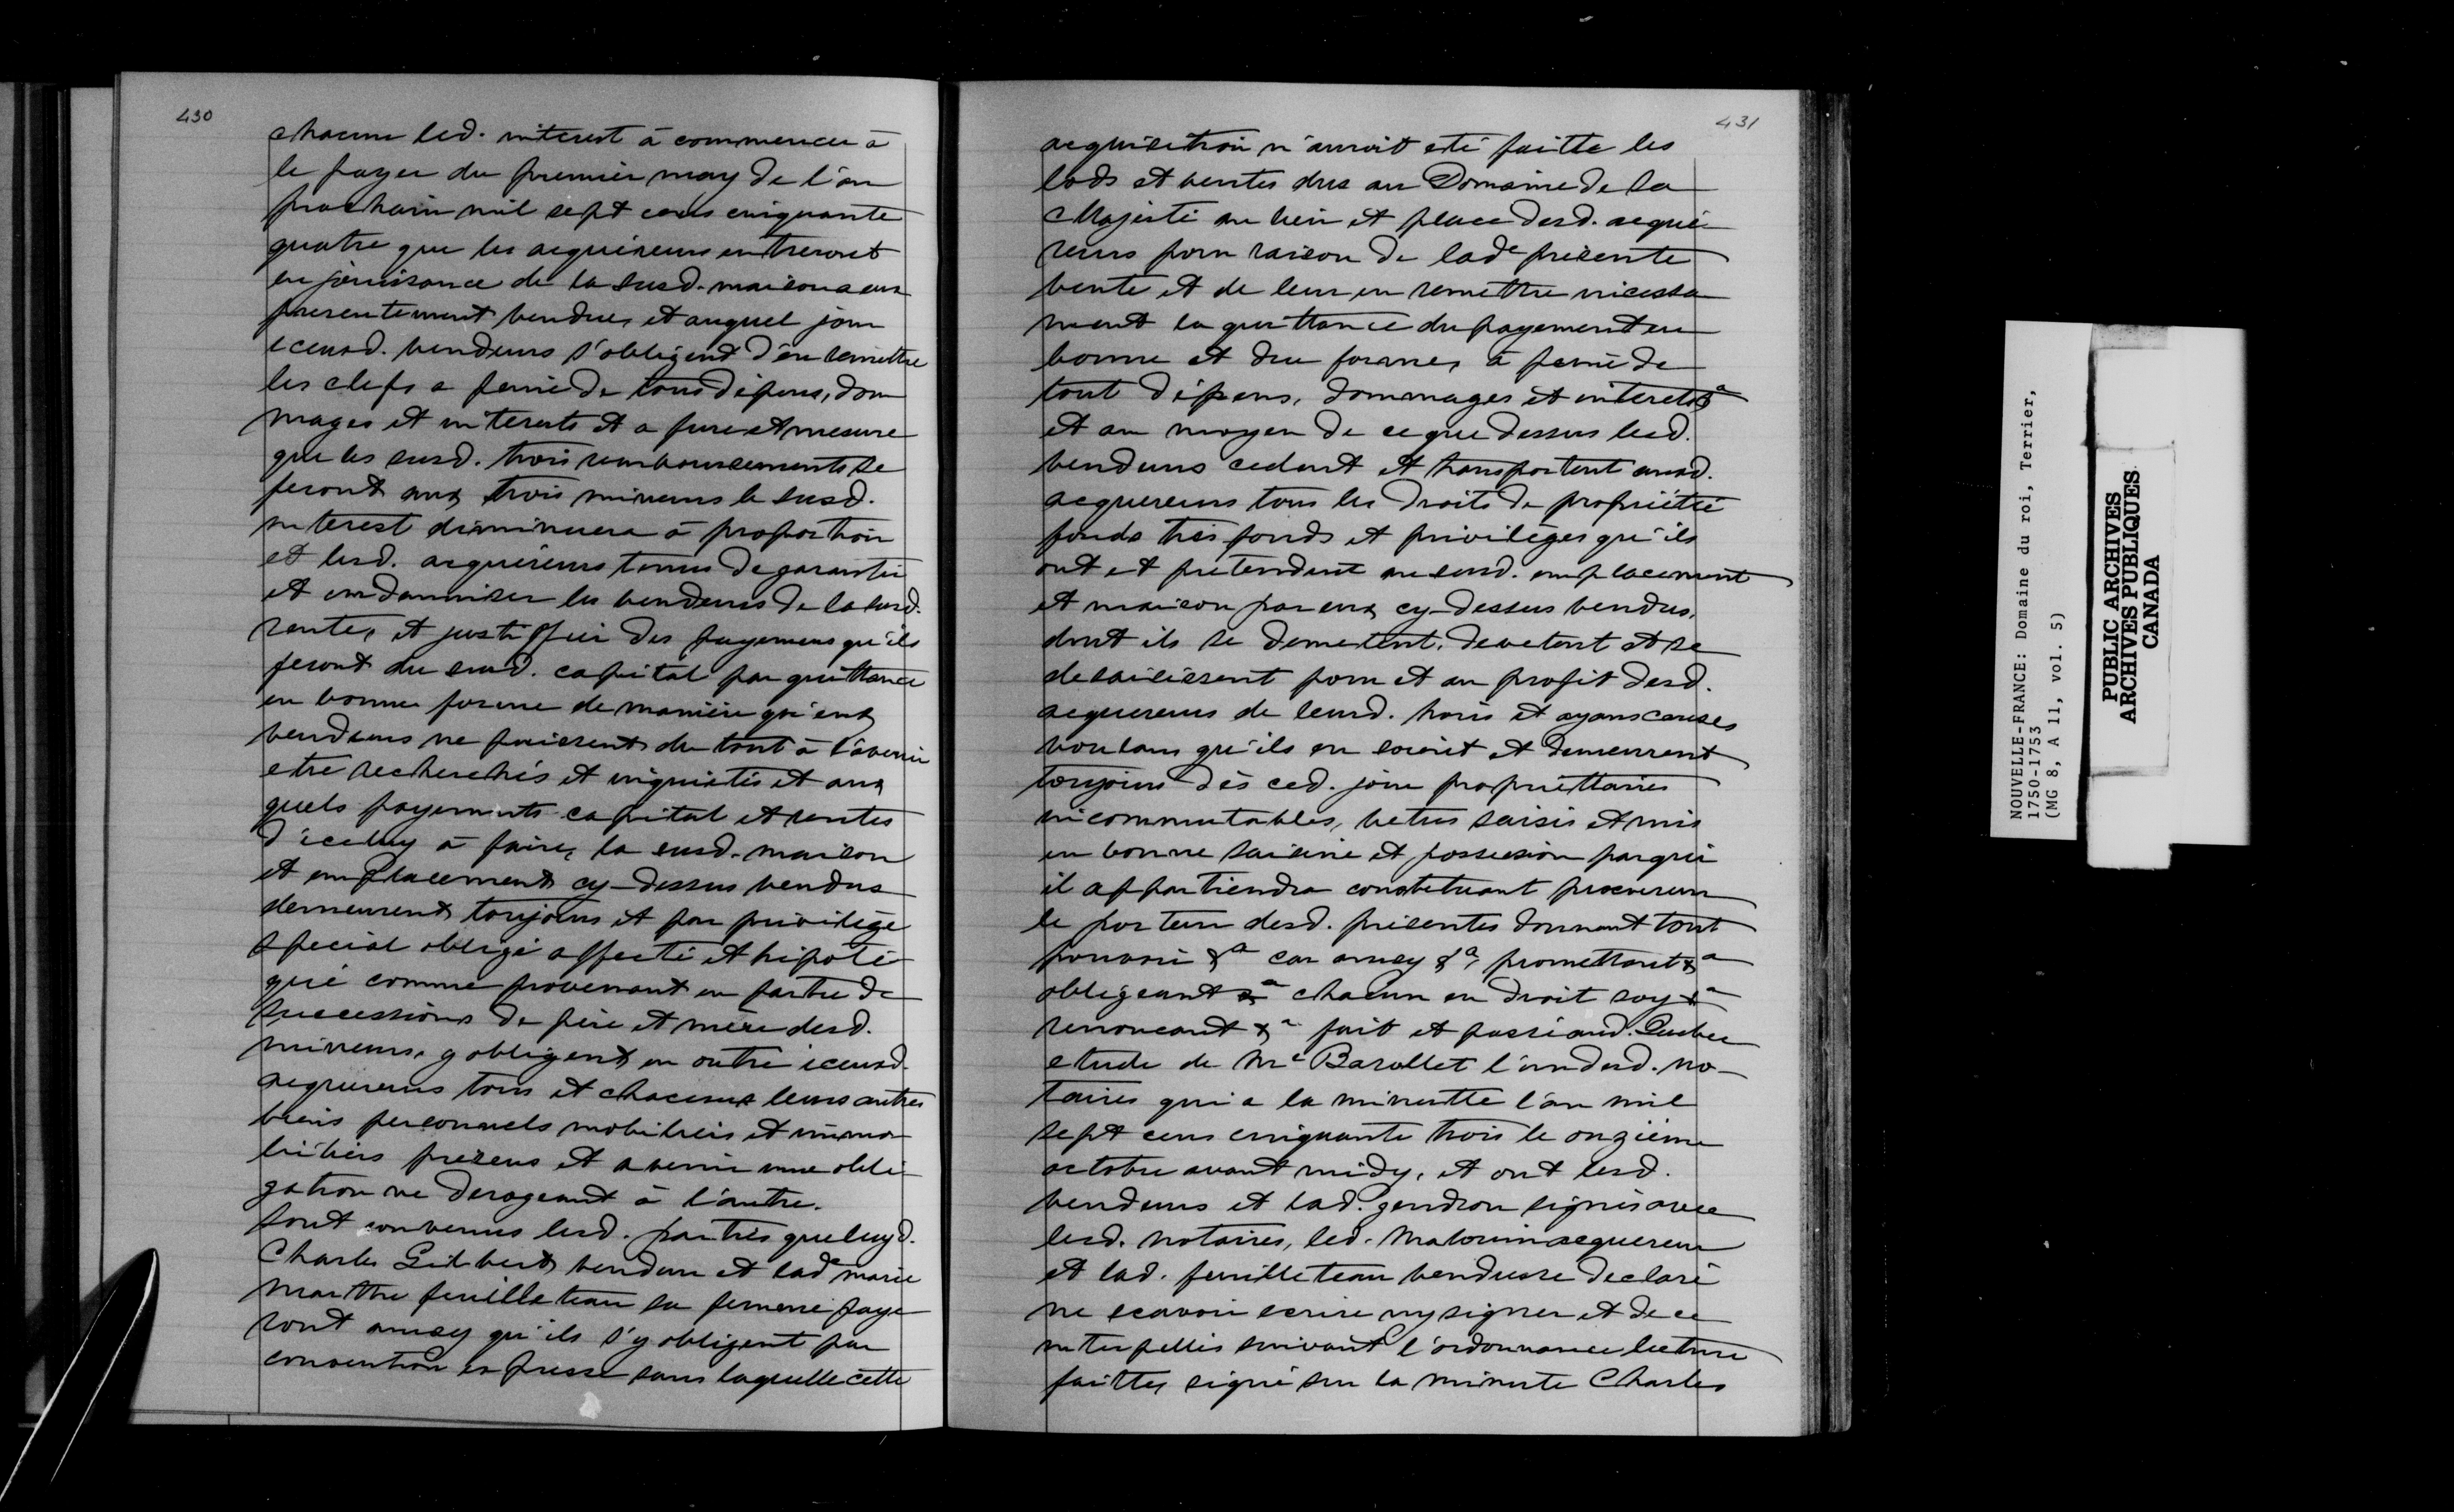 430
chacune led. interest à commencer à
le payer du premier may de l'an
prochain mil sept cens cinquante
quatre que les acquéreurs entreront
en jouissance de la susd. maison a eux
presentement vendue, et auquel jour
iceuxd. vendeurs s'obligent d'en remettre
les clefs a peine de tous dépens, dom
mages et interests et a fure et mesure
que les susd. trois remboursements se
feront aux trois mineurs le susd.
interest diminuera à proportion
et lesd. acquéreurs tenus de garantir
et indamniser les vendeurs de la susd.
rente, et justiffier des payemens qu'ils
feront du susd. capital par quittance
en bonne forme de manière qu'eux
vendeurs ne puissent du tout à l'avenir
etre recherchés et inquiétés et aux
quels payements capital et rentes
d'iceluy à faire, la susd. maison
et emplacement cy-dessus vendus
demeurent toujours et par privilège
special obligé affecté et hipoté
qué comme provenant en partie de
successions de père et mère desd.
mineurs, y obligent en outre iceuxd.
acquereurs tous et chacuns leurs autres
biens personnels mobiliers et immo
biliers presens et a venir une obli
gation ne derogeant à l'autre.
Sont convenus lesd. parties que luyd.
Charles Gilbert vendeur et lade marie
marthe feuilleteau sa femme paye
ront aussy qu'ils s'y obligent par
convention expresse sans laquelle cette
431
acquisition n'auroit eté faitte les
lods et ventes dus au Domaine de Sa
Majesté au lieu et place desd. acqué
reurs pour raison de lade présente
vente et de leur en remettre incessa
ment la quittance du payement en
bonne et due forme, à peine de
tout dépens, dommages et interets a
et au moyen de ce que dessus lesd.
vendeurs cedent et transportent auxd.
acquereurs tous les droits de propriété
fonds très fonds et privilèges qu'ils
ont et pretendent au susd. emplacement
et maison par eux cy-dessus vendus,
dont ils se demetent, devetent et se
desaisissent pour et au profit desd.
acquereurs de leurd. hoirs et ayans causes
voulans qu'ils en soient et demeurent
toujours dès ced. jour propriettaires
incommutables, vetus saisis et mis
en bonne saisine et possession par qui
il appartiendra constituant procureur
le porteur desd. présentes donnant tout
pouvoir &a car ainsy &a, promettant &a
obligeant &a chacun en droit soy &a
renoncant &a fait et passé aud. Quebec
etude de Me Barollet l'un desd. no-
taires qui a la minutte l'an mil
sept cens cinquante trois le onzième
octobre avant midy, et ont lesd.
vendeurs et lad. gendron signés avec
lesd. notaires, led. Matourin acquereur
et lad. feuilleteau venderesse declaré
ne scavoir ecrire ny signer et de ce
interpellés suivant l'ordonnance lecture
faitte, signé sur la minute Charles
NOUVELLE-FRANCE: Domaine du roi, Terrier,
1750-1753
(MG 8, A 11, vol. 5)
PUBLIC ARCHIVES
ARCHIVES PUBLIQUES
CANADA